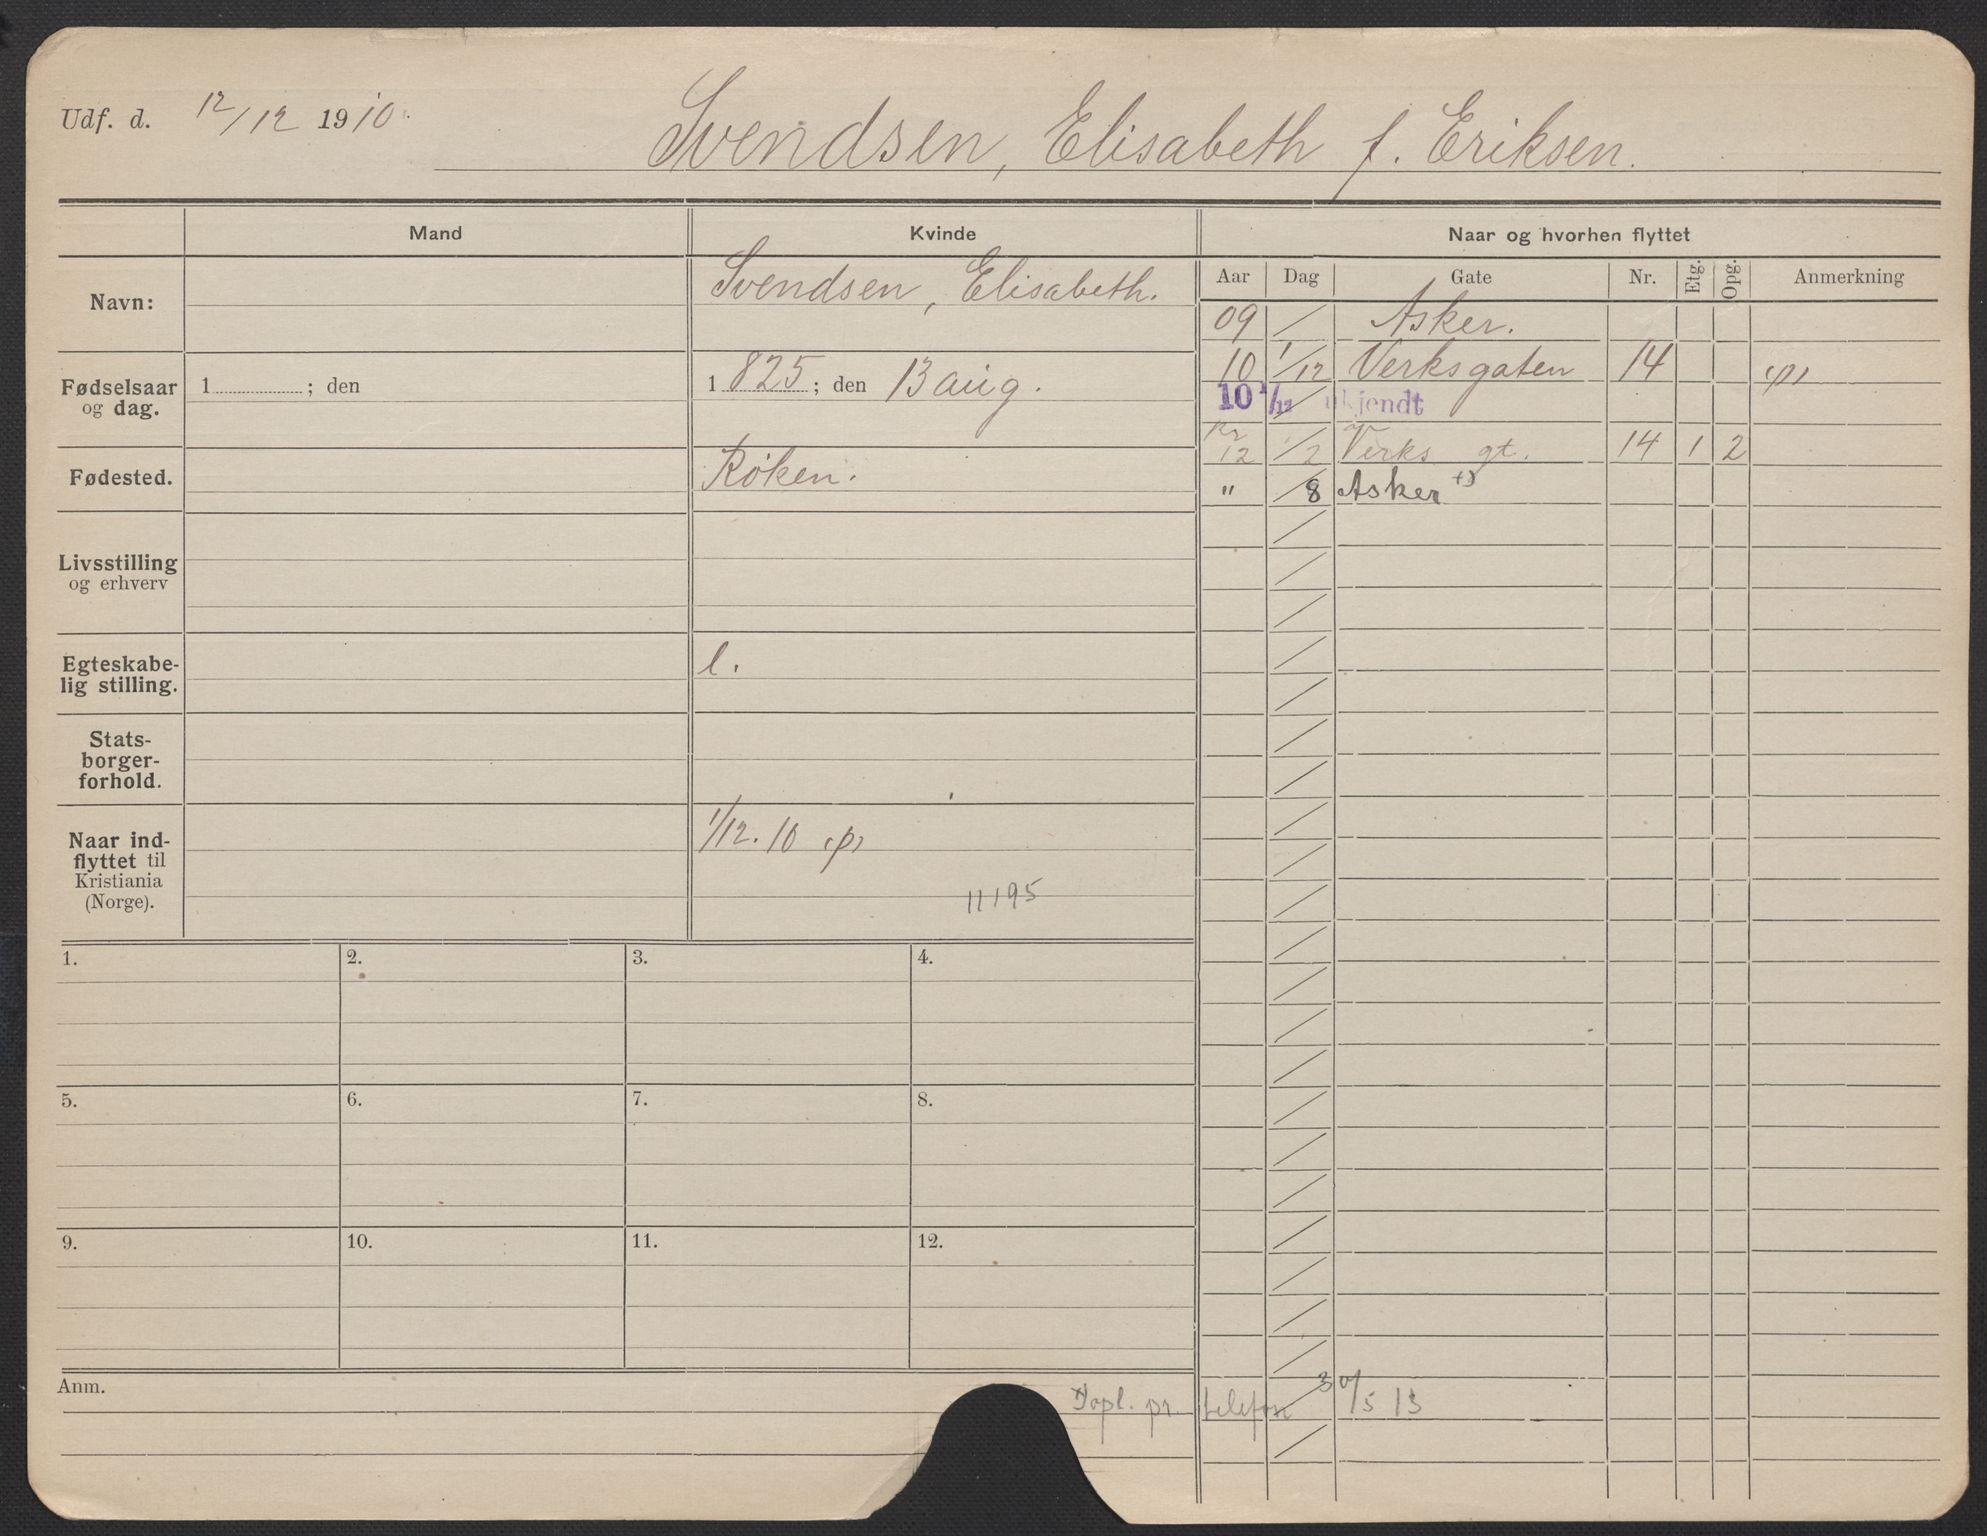 Udf. d. 12/12 1910.
Svendsen, Elisabeth f. Eriksen.
Mand
Kvinde
Naar og hvorhen flyttet
Navn:
Svendsen, Elisabeth.
Aar Dag Gate Nr. Etg. Opg. Anmerkning
09 / Asker.
10 1/12 Verksgaten 14
10 1/12 ukjendt
12 1/2 Verks gt. 14 1 2
" /8 Asker
Fødselsaar
og dag.
1 ; den
1825 ; den 13 aug.
Fødested.
Røken.
Livsstilling
og erhverv
Egteskabe-
lig stilling.
l.
Stats-
borger-
forhold.
Naar ind-
flyttet til
Kristiania
(Norge).
1/12. 10
11195
1. 2. 3. 4.
5. 6. 7. 8.
9. 10. 11. 12.
Anm.
pr. telefon 30/5 13